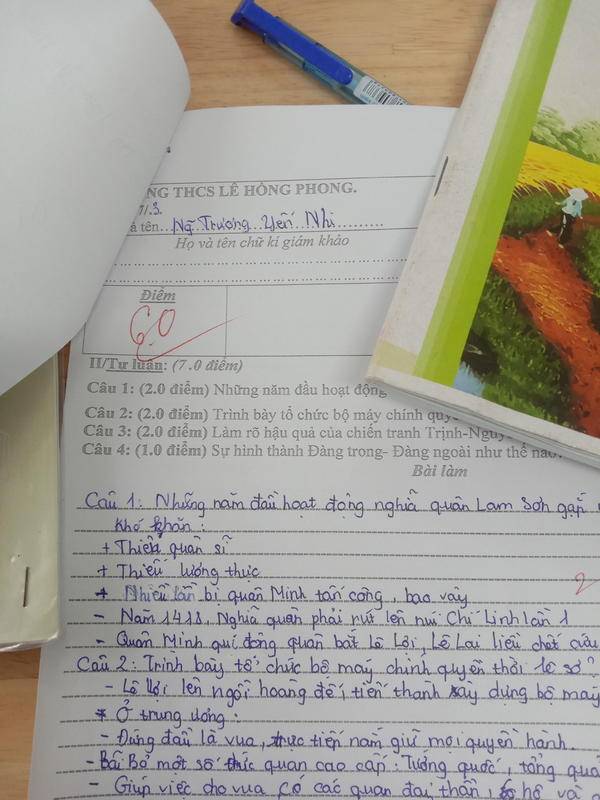 NG THCS LÊ HỒNG PHONG.
7/3.
à tên....Ng̃ Trương Yến Nhi..........
Họ và tên chữ kí giám khảo
Điểm
6.0
II/Tự luận: (7.0 điểm)
Câu 1: (2.0 điểm) Những năm đầu hoạt động
Câu 2: (2.0 điểm) Trình bày tổ chức bộ máy chính quy
Câu 3: (2.0 điểm) Làm rõ hậu quả của chiến tranh Trịnh-Nguy
Câu 4: (1.0 điểm) Sự hình thành Đàng trong- Đàng ngoài như thế nào?
Bài làm
Câu 1: Những năm đầu hoạt động nghĩa quân Lam Sơn gặp
khó khăn:
+ Thiếu quân sĩ
+ Thiếu lương thực
+ Nhiều lần bị quân Minh tấn công, bao vây
2
- Năm 1418, Nghĩa quân phải rút lên núi Chí Linh lần 1
- Quân Minh quí động quân bắt Lê Lợi, Lê Lai liều chết cứu
Câu 2: Trình bày tổ chức bộ máy chính quyền thời lê sơ?
- Lê Lợi lên ngôi hoàng đế, tiến thanh xây dựng bộ máy
* Ở trung ương:
- Đứng đầu là vua, trực tiếp nắm giữ mọi quyền hành.
- Bãi bỏ một số thức quan cao cấp: Tướng quốc, tổng quả
- Giúp việc cho vua có các quan đại thần,